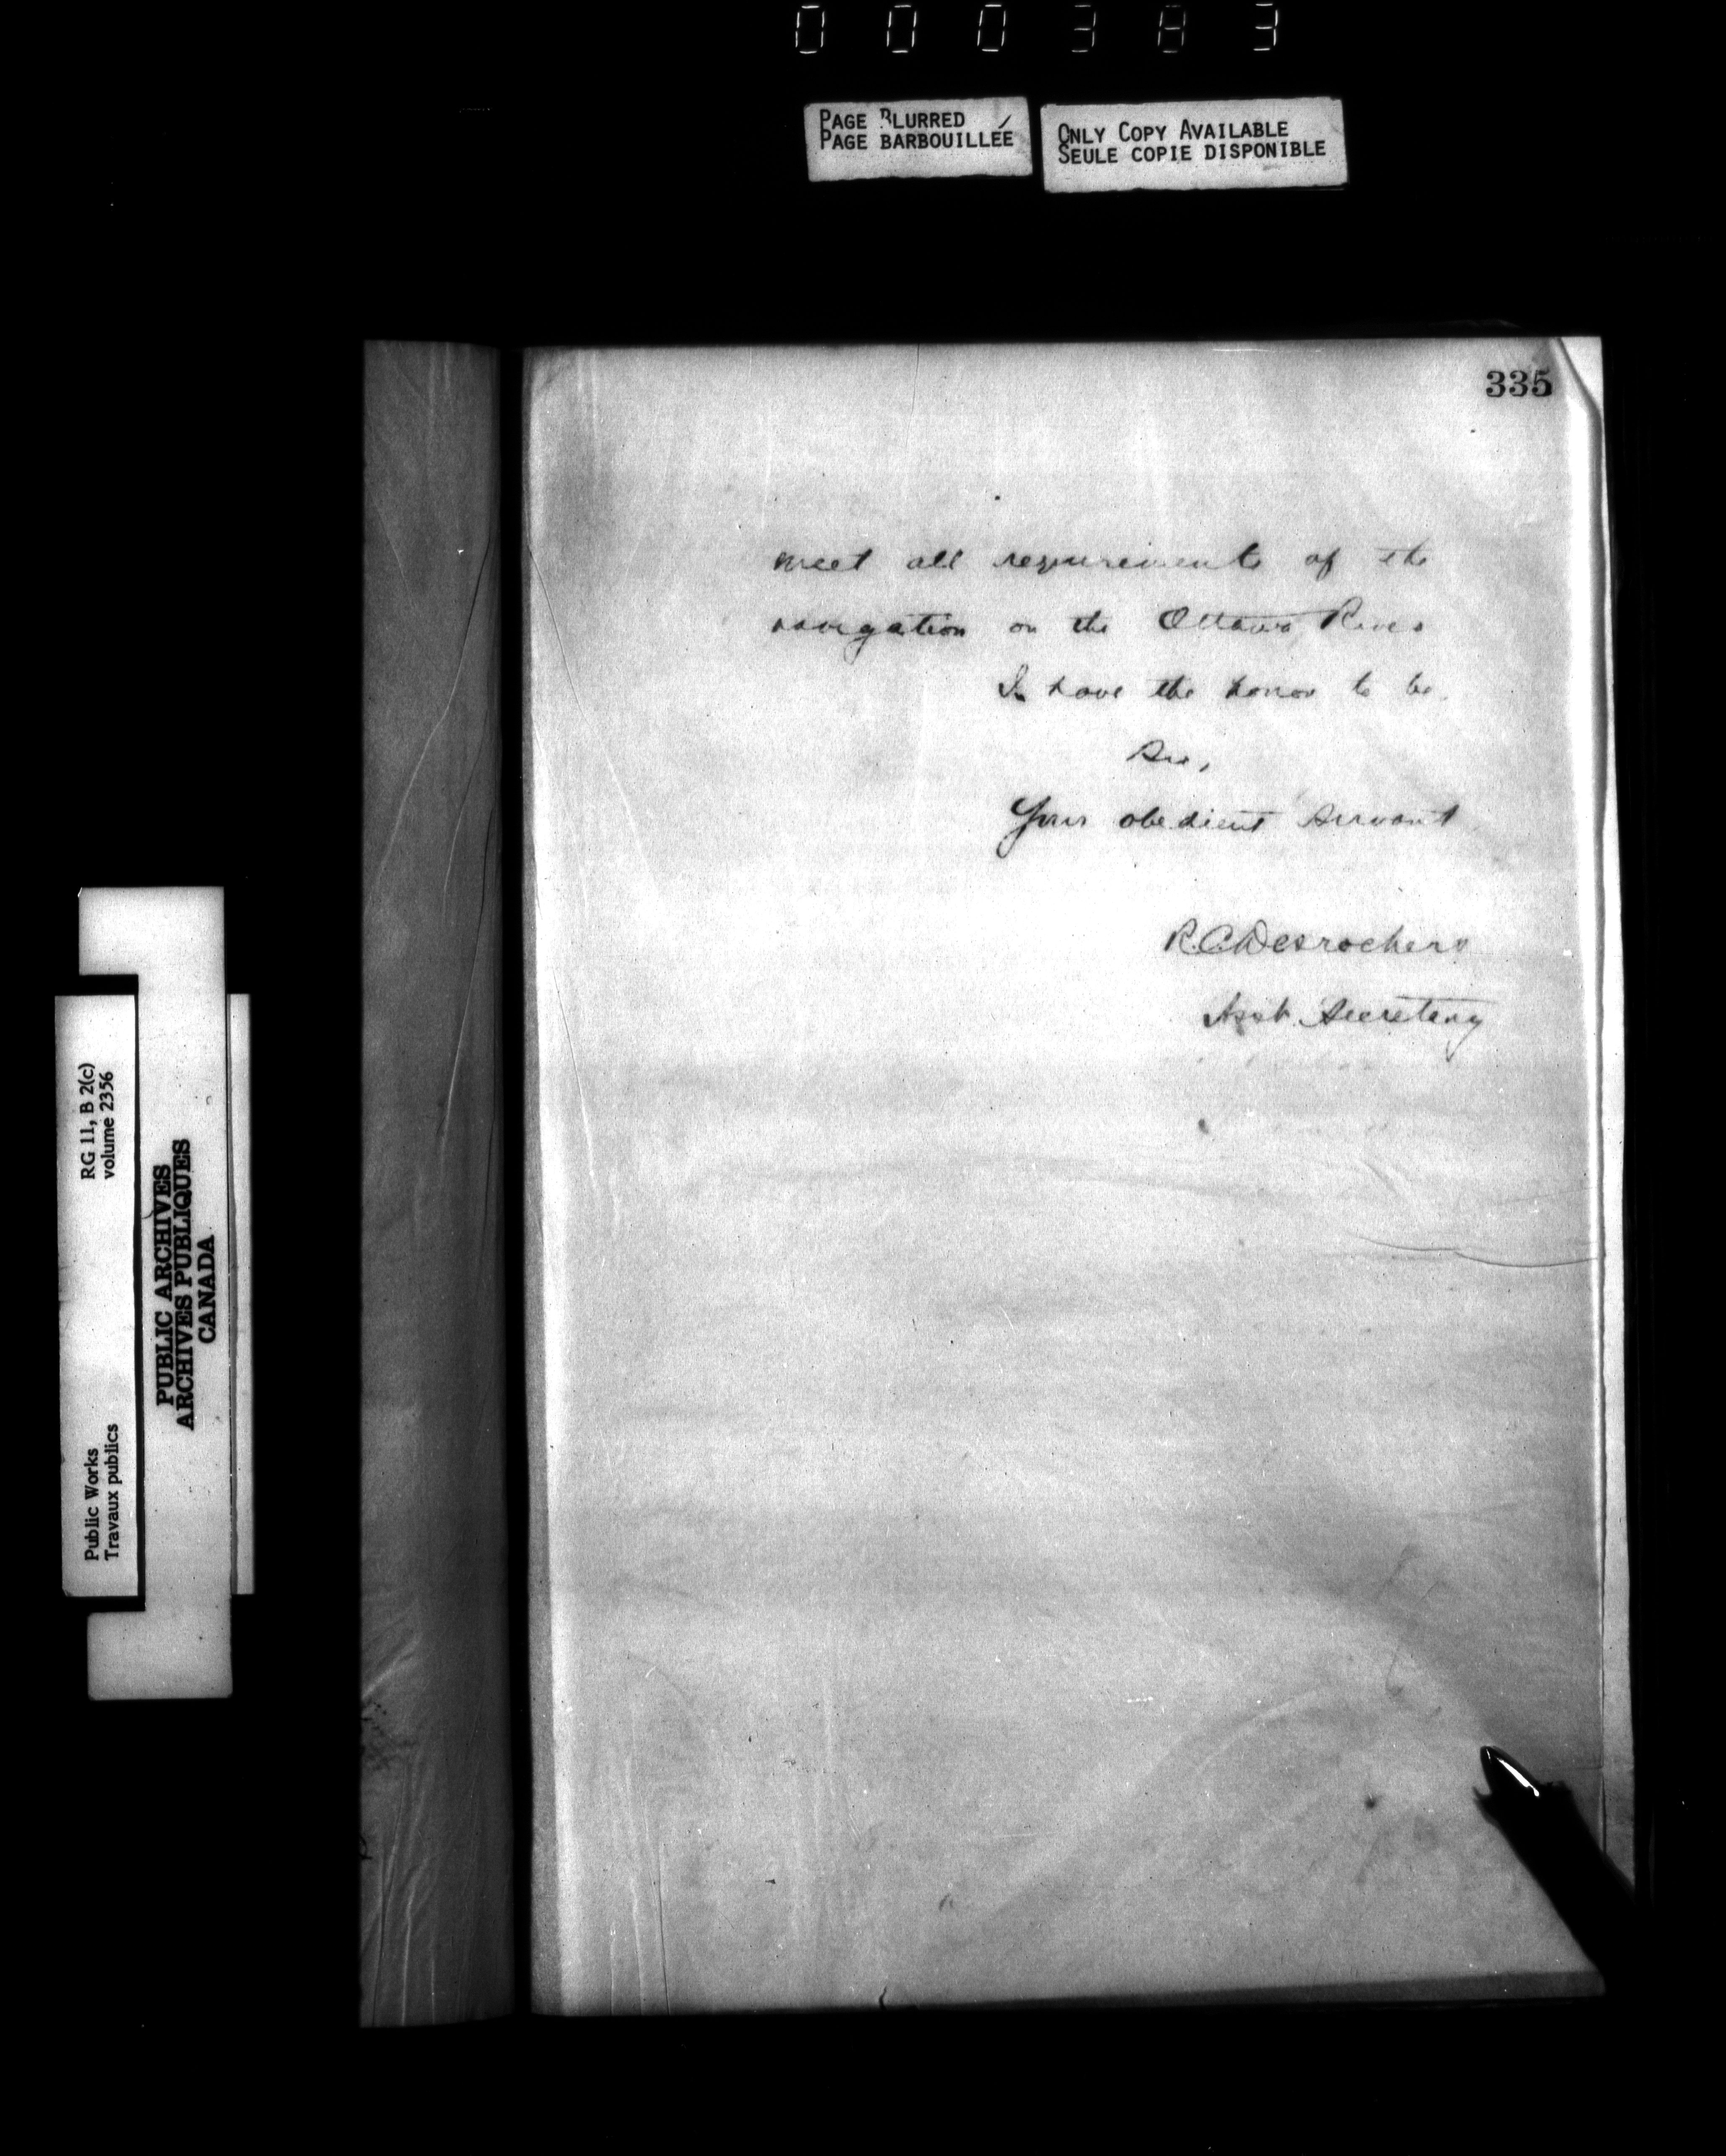 000383
PAGE BLURRED
PAGE BARBOUILLÉE
ONLY COPY AVAILABLE
SEULE COPIE DISPONIBLE
335
meet all requirements of the
navigation on the Ottawa River
I have the honor to be
Sir,
Your obedient Servant
R.C. Desrochers
Asst. Secretary
RG 11, B 2(c)
volume 2356
PUBLIC ARCHIVES
ARCHIVES PUBLIQUES
CANADA
Public Works
Travaux publics